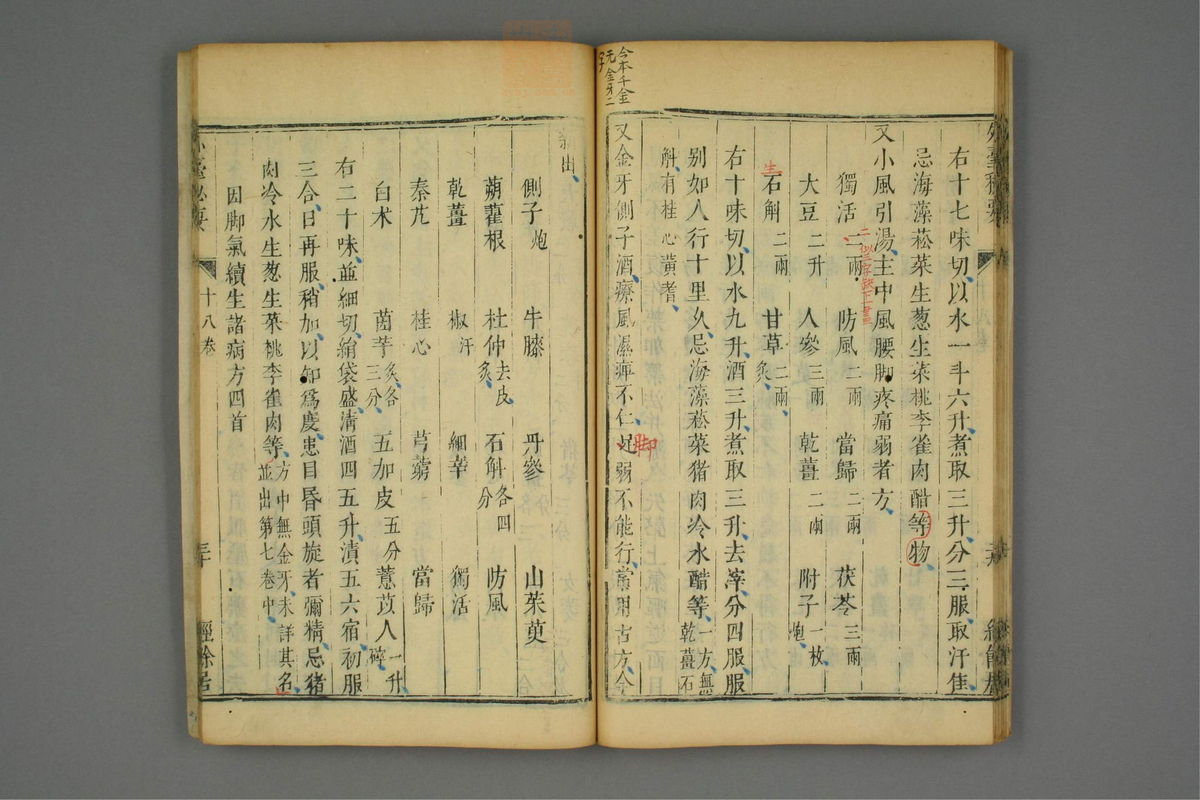 右十七味切以水一斗六升煮取三升分三服取汗佳
忌海藻菘菜生葱生菜桃李雀肉醋等物
又小風引湯主中風腰脚疼痛弱者方
獨活二兩 防風二兩 當歸二兩 茯苓三兩
大豆二升 人參三兩 乾薑二兩 附子一枚炮
生
石斛二兩 甘草炙二兩
右十味切以水九升酒三升煮取三升去滓分四服服
别如人行十里久忌海藻菘菜猪肉冷水醋等一方無乾薑石
斛有桂心黃耆
又金牙側子酒療風濕痺不仁脚弱不能行常用古方今
今本千金
无金牙二
字
新出
側子炮 牛膝 丹參 山茱萸
蒴藋根 杜仲去皮炙 石斛各四分 防風
乾薑 椒汗 細辛 獨活
秦艽 桂心 芎藭 當歸
白术 茵芋炙各三分 五加皮五分 薏苡人一升碎
右二十味並細切絹袋盛清酒四五升漬五六宿初服
三合日再服稍加以知爲度患目昏頭旋者彌精忌猪
肉冷水生葱生菜桃李雀肉等方中無金牙未詳其名並出第七卷中
因脚氣續生諸病方四首
外臺秘要
十八卷
經餘居